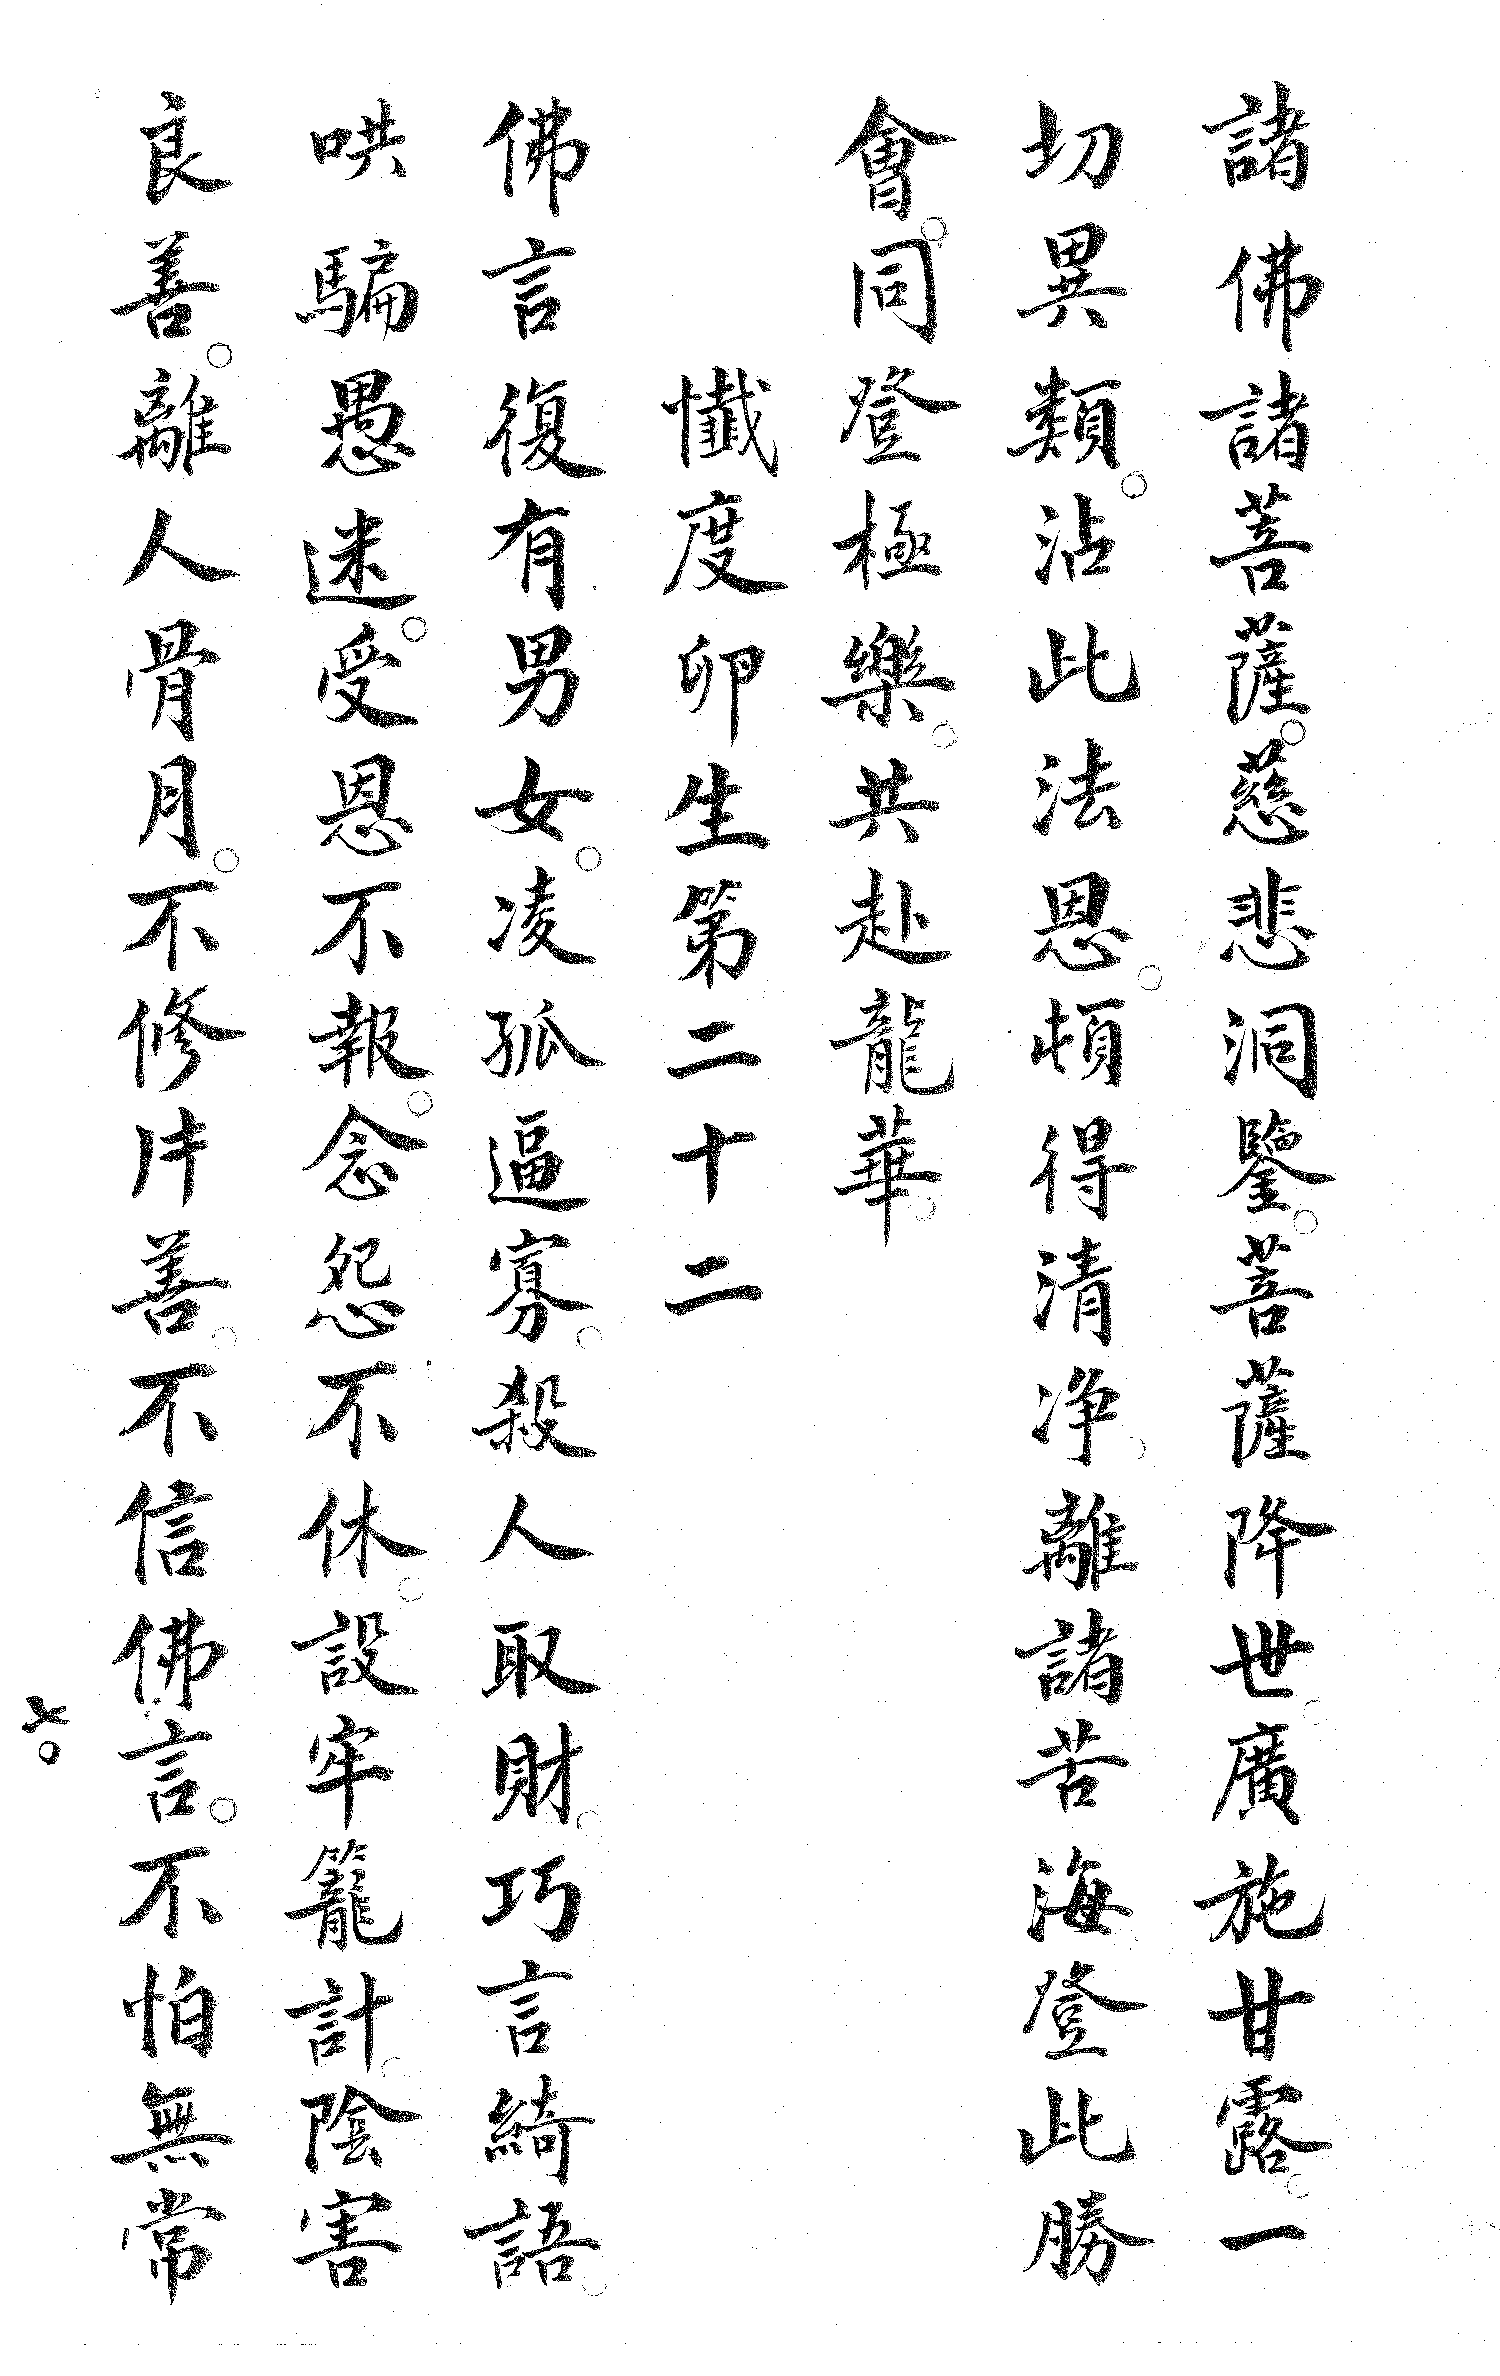 諸佛諸菩薩。慈悲洞鑒。菩薩降世。廣施甘露。一
切異類。沾此法恩。頓得清净。離諸苦海登此勝
會。同登極樂。共赴龍華。
懺度卵生第二十二
佛言復有男女。凌孤逼寡。殺人取財。巧言綺語。
哄騙愚迷。受恩不報。念怨不休。設牢籠計。陰害
良善。離人骨月。不修片善。不信佛言。不怕無常
七。